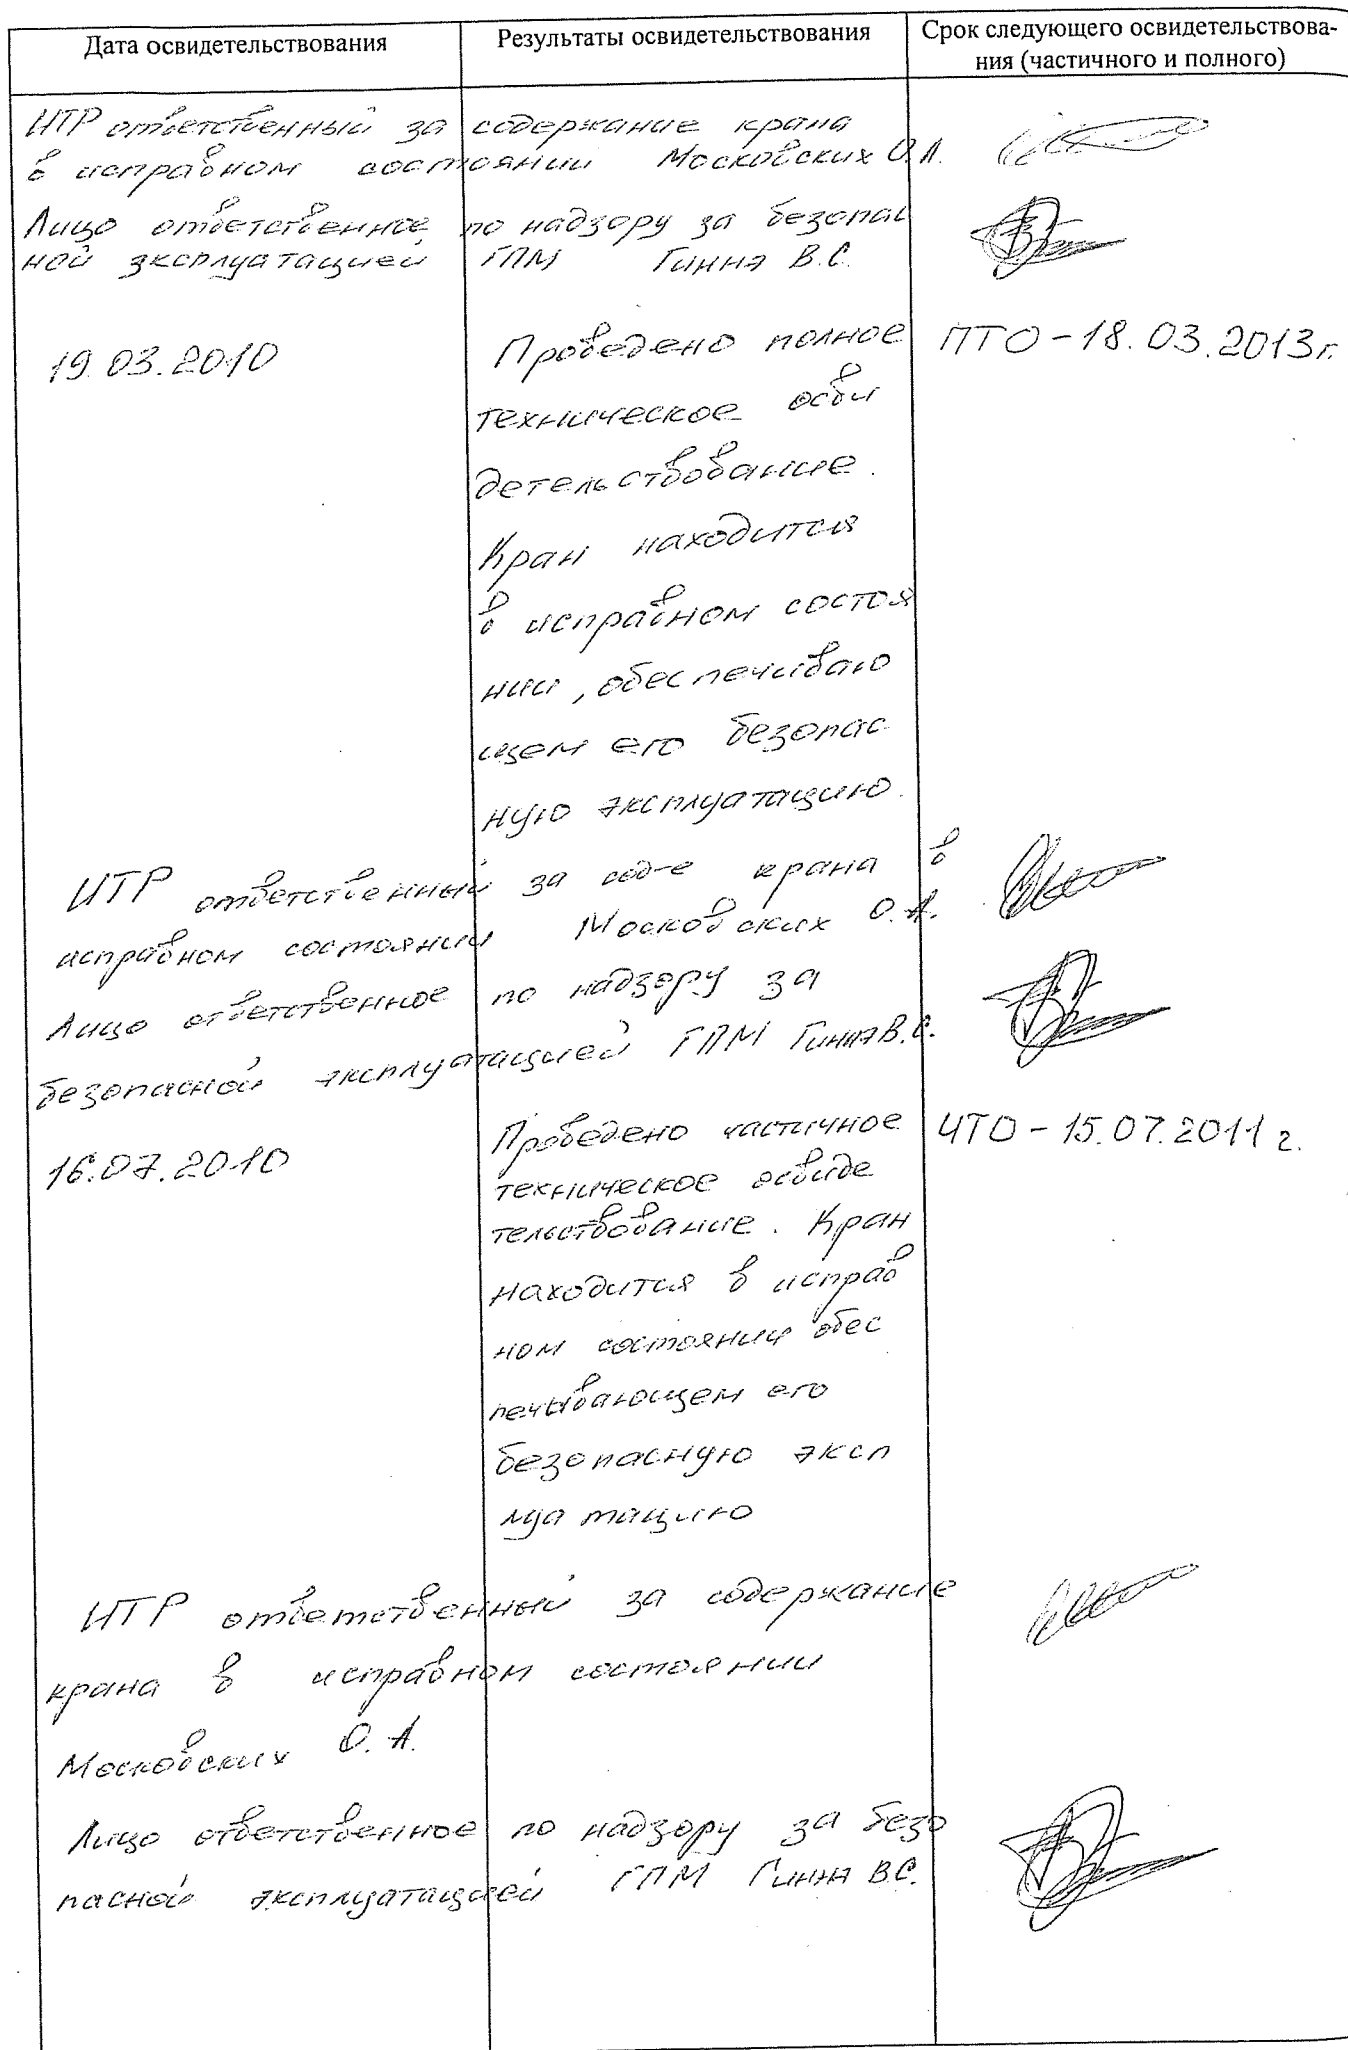 Дата освидетельствования
Результаты освидетельствования
Срок следующего освидетельствова-
ния (частичного и полного)
ИТР ответственный за содержание крана
в исправном состоянии Московских О.А.
Лицо ответственное по надзору за безопас
ной эксплуатацией ГПМ Гиння В.С.
19.03.2010
Проведено полное
ПТО - 18.03.2013г.
техническое осви
детельствование.
Кран находится
в исправном состоя
нии, обеспечиваю
щем его безопас
ную эксплуатацию.
ИТР ответственный за сод-е крана в
исправном состоянии Московских О.А.
Лицо ответственное по надзору за
безопасной эксплуатацией ГПМ Гиння В.С.
16.07.2010
Проведено частичное
ЧТО - 15.07.2011 г.
техническое освиде
тельствование. Кран
находится в исправ
ном состоянии обес
печивающем его
безопасную эксп
луатацию
ИТР ответственный за содержание
крана в исправном состоянии
Московских О.А.
Лицо ответственное по надзору за безо
пасной эксплуатацией ГПМ Гиння В.С.